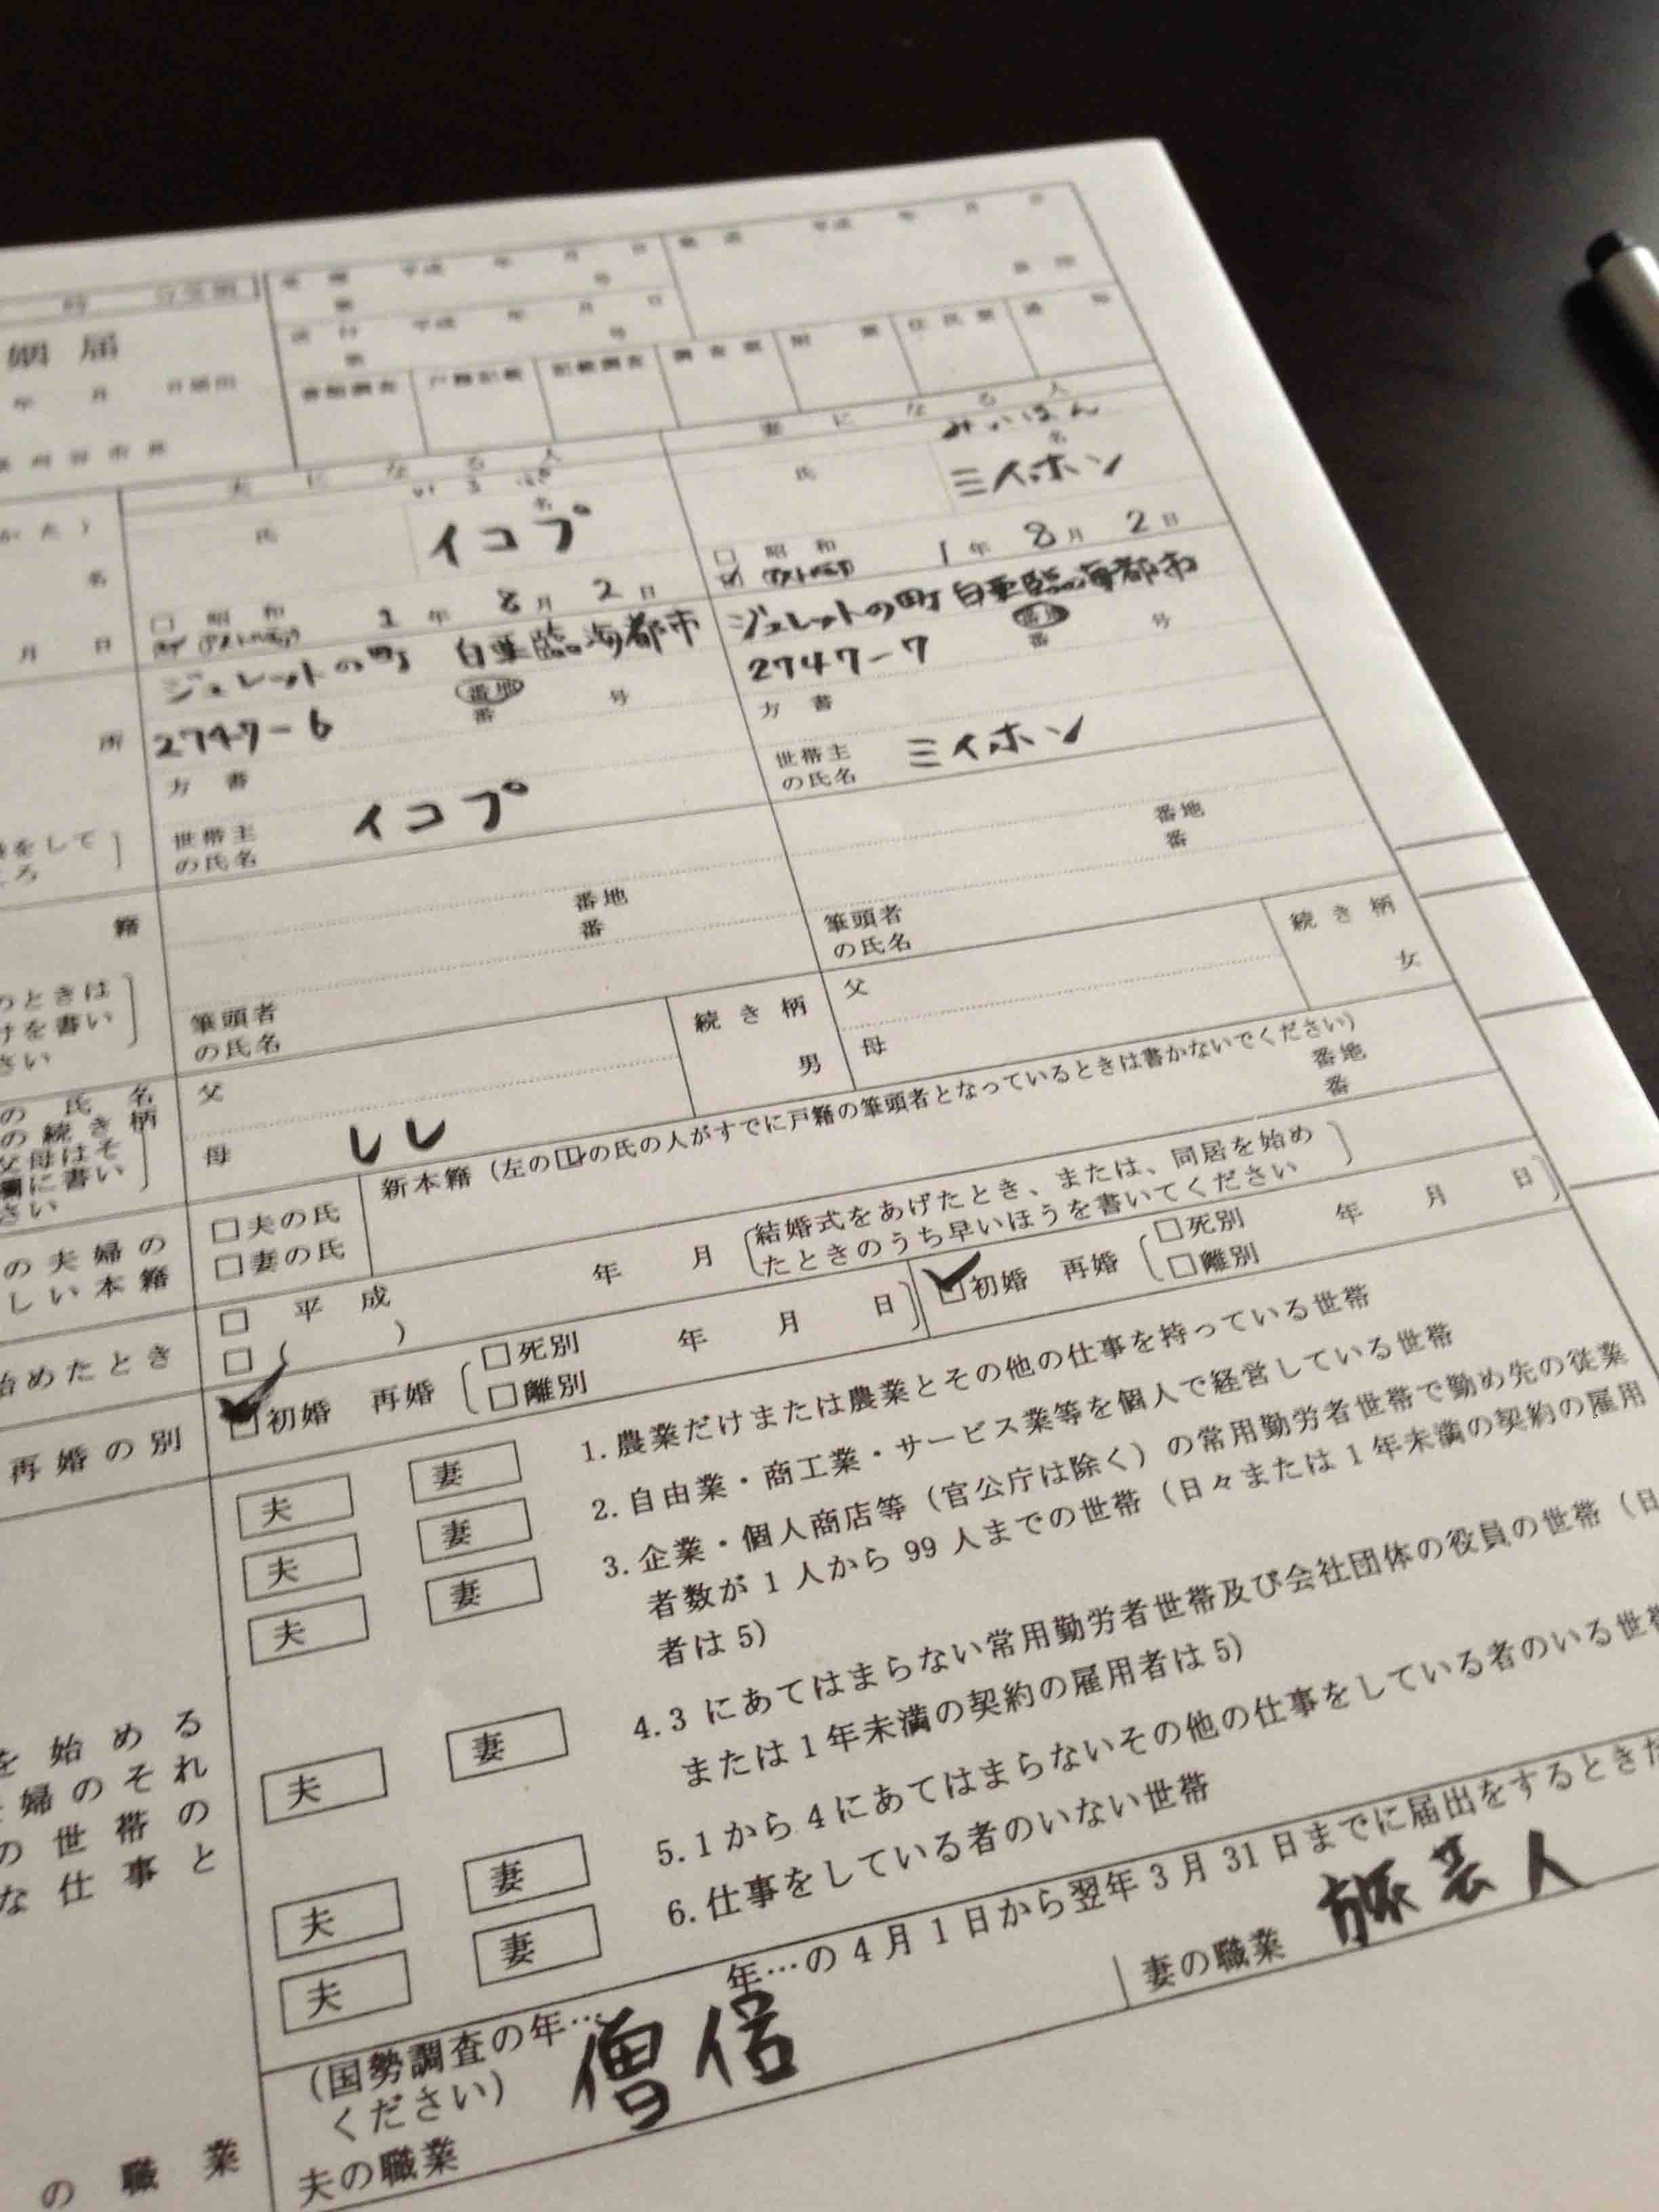 姻届
年 月 日届出
夫になる人
妻になる人
みいほん
氏 名
イコプ
氏 名
ミイホン
□ 昭和 1年 8月 2日
□ 昭和 1年 8月 2日
ジュレットの町 白亜臨海都市
2747-6
番地
番 号
方書
世帯主の氏名 イコプ
ジュレットの町 白亜臨海都市
2747-7
番地
番 号
方書
世帯主の氏名 ミイホン
籍
番地
番
筆頭者の氏名
番地
番
筆頭者の氏名
父
母 しし
続き柄
男
父
母
続き柄
女
の夫婦の
しい本籍
□夫の氏
□妻の氏
新本籍(左の□の氏の人がすでに戸籍の筆頭者となっているときは書かないでください)
番地
番
始めたとき
□ 平成
□ ( )
年 月
(結婚式をあげたとき、または、同居を始め
たときのうち早いほうを書いてください)
再婚の別
□初婚 再婚 (□死別 □離別 年 月 日)
□初婚 再婚 (□死別 □離別 年 月 日)
を始める
婦のそれ
の世帯の
な仕事と
夫 妻 1.農業だけまたは農業とその他の仕事を持っている世帯
夫 妻 2.自由業・商工業・サービス業等を個人で経営している世帯
夫 妻 3.企業・個人商店等(官公庁は除く)の常用勤労者世帯で勤め先の従業
者数が1人から99人までの世帯(日々または1年未満の契約の雇用
者は5)
夫 妻 4.3にあてはまらない常用勤労者世帯及び会社団体の役員の世帯(日
または1年未満の契約の雇用者は5)
夫 妻 5.1から4にあてはまらないその他の仕事をしている者のいる世帯
夫 妻 6.仕事をしている者のいない世帯
の職業
(国勢調査の年… 年…の4月1日から翌年3月31日までに届出をするときだ
ください)
夫の職業 僧侶
妻の職業 旅芸人